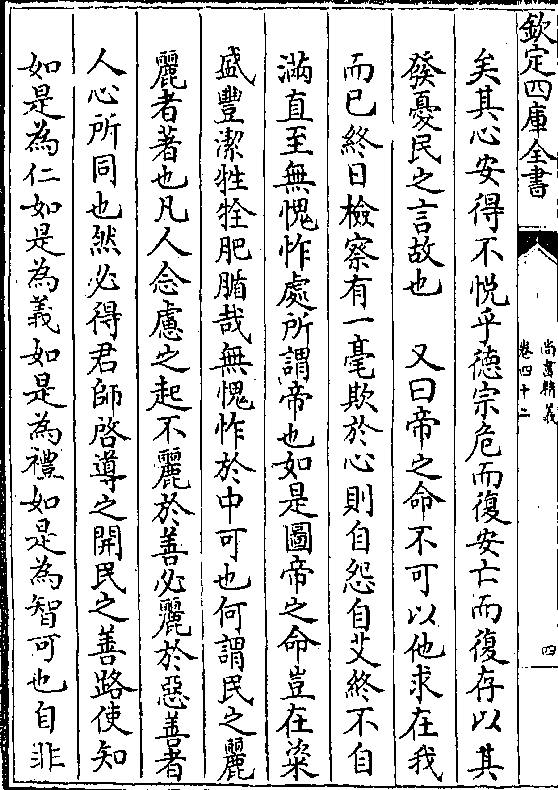 欽定四庫全書
尚書精義
卷四十二
四
矣其心安得不悅乎德宗危而復安亡而復存以其
發憂民之言故也　又曰帝之命不可以他求在我
而已終日檢察有一毫欺於心則自怨自艾終不自
滿直至無愧怍處所謂帝也如是圖帝之命豈在粢
盛豐潔牲牷肥腯哉無愧怍於中可也何謂民之麗
麗者著也凡人念慮之起不麗於善必麗於惡善者
人心所同也然必得君師啓導之開民之善路使知
如是為仁如是為義如是為禮如是為智可也自非